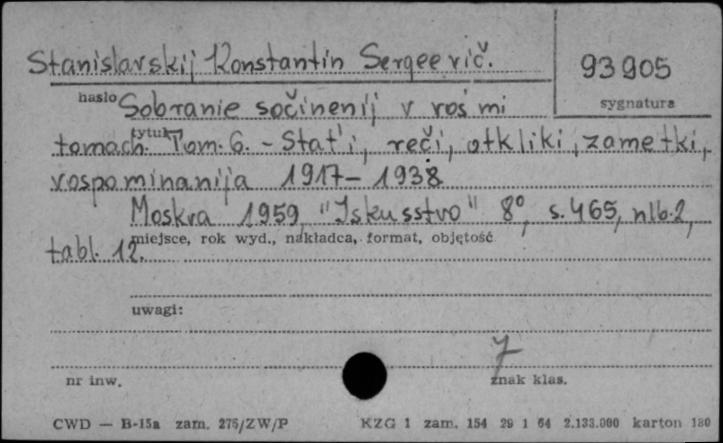 Stanislavskij Konstantin Sergeevič.
93905
hasło
sygnatura
Sobranie sočinenij v vos'mi
tytuł
tomach. Tom. 6. - Stat'i, reči, otkliki, zametki,
vospominanija 1917-1938
Moskva 1959, "Iskusstvo" 8°, s. 465, nlb. 2,
miejsce, rok wyd., nakładca, format, objętość
tabl. 12.
uwagi:
7
nr inw.
znak klas.
CWD — B-15a zam. 276/ZW/P
KZG 1 zam. 154 29 1 64 2.133.000 karton 180